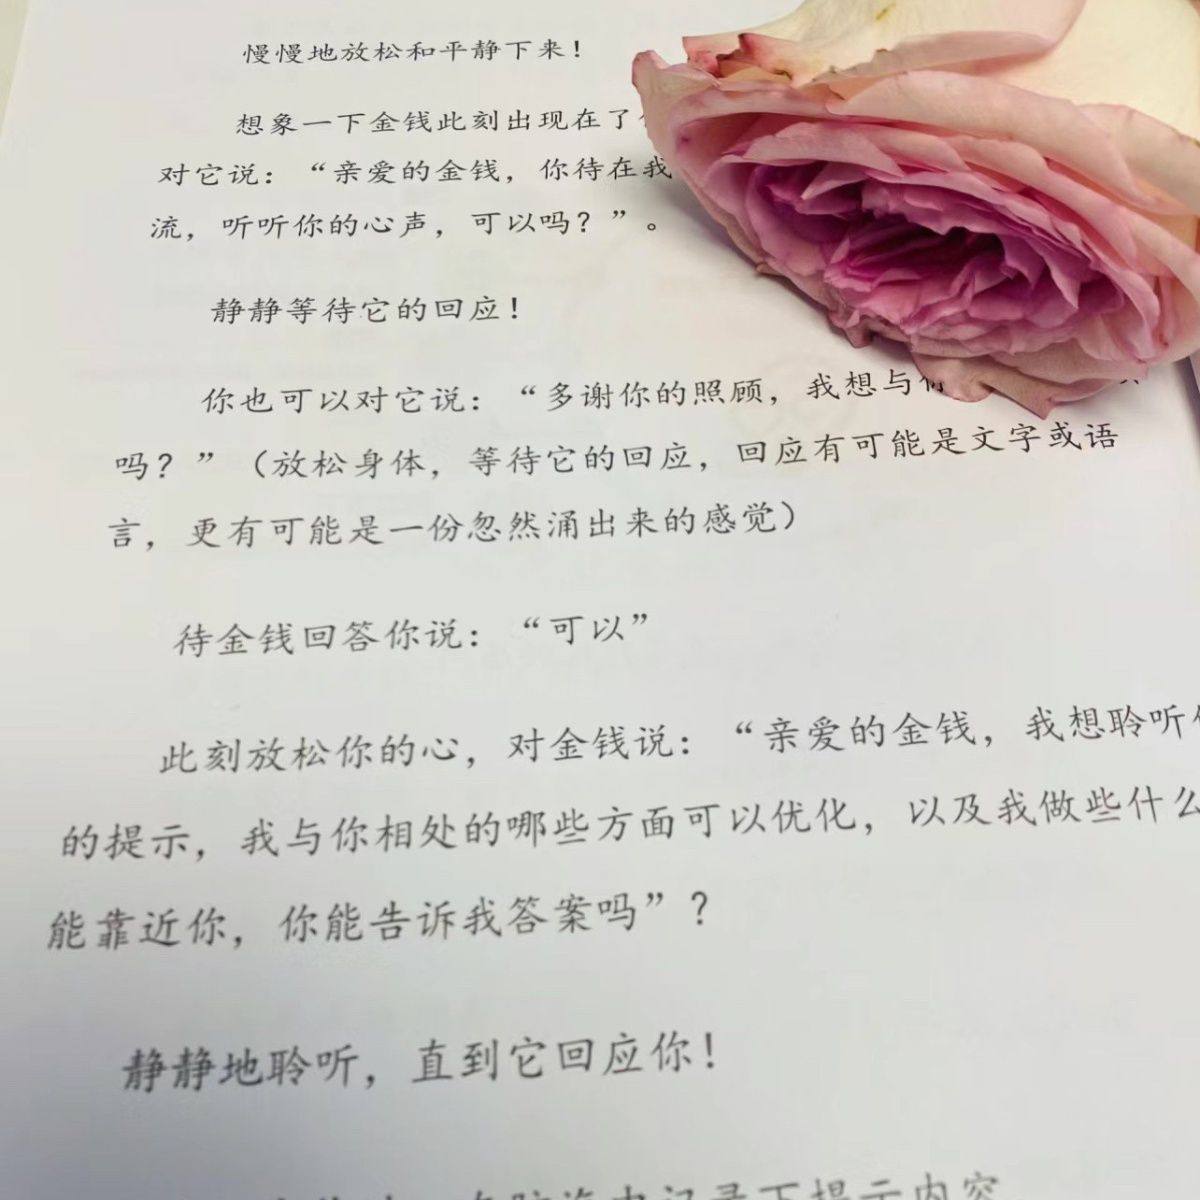 慢慢地放松和平静下来！
想象一下金钱此刻出现在了
对它说：“亲爱的金钱，你待在我
流，听听你的心声，可以吗？”。
静静等待它的回应！
你也可以对它说：“多谢你的照顾，我想与
吗？”（放松身体，等待它的回应，回应有可能是文字或语
言，更有可能是一份忽然涌出来的感觉）
待金钱回答你说：“可以”
此刻放松你的心，对金钱说：“亲爱的金钱，我想聆听
的提示，我与你相处的哪些方面可以优化，以及我做些什么
能靠近你，你能告诉我答案吗”？
静静地聆听，直到它回应你！
记录下提示内容